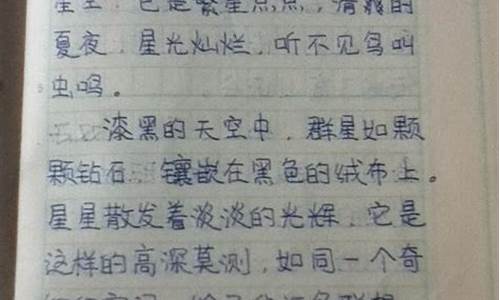 星空，它是繁星点点，清爽的
夏夜，星光灿烂，听不见鸟叫
虫鸣。
漆黑的天空中，群星如颗
颗钻石，镶嵌在黑色的绒布上。
星星散发着淡淡的光辉，它是
这样的高深莫测，如同一个奇